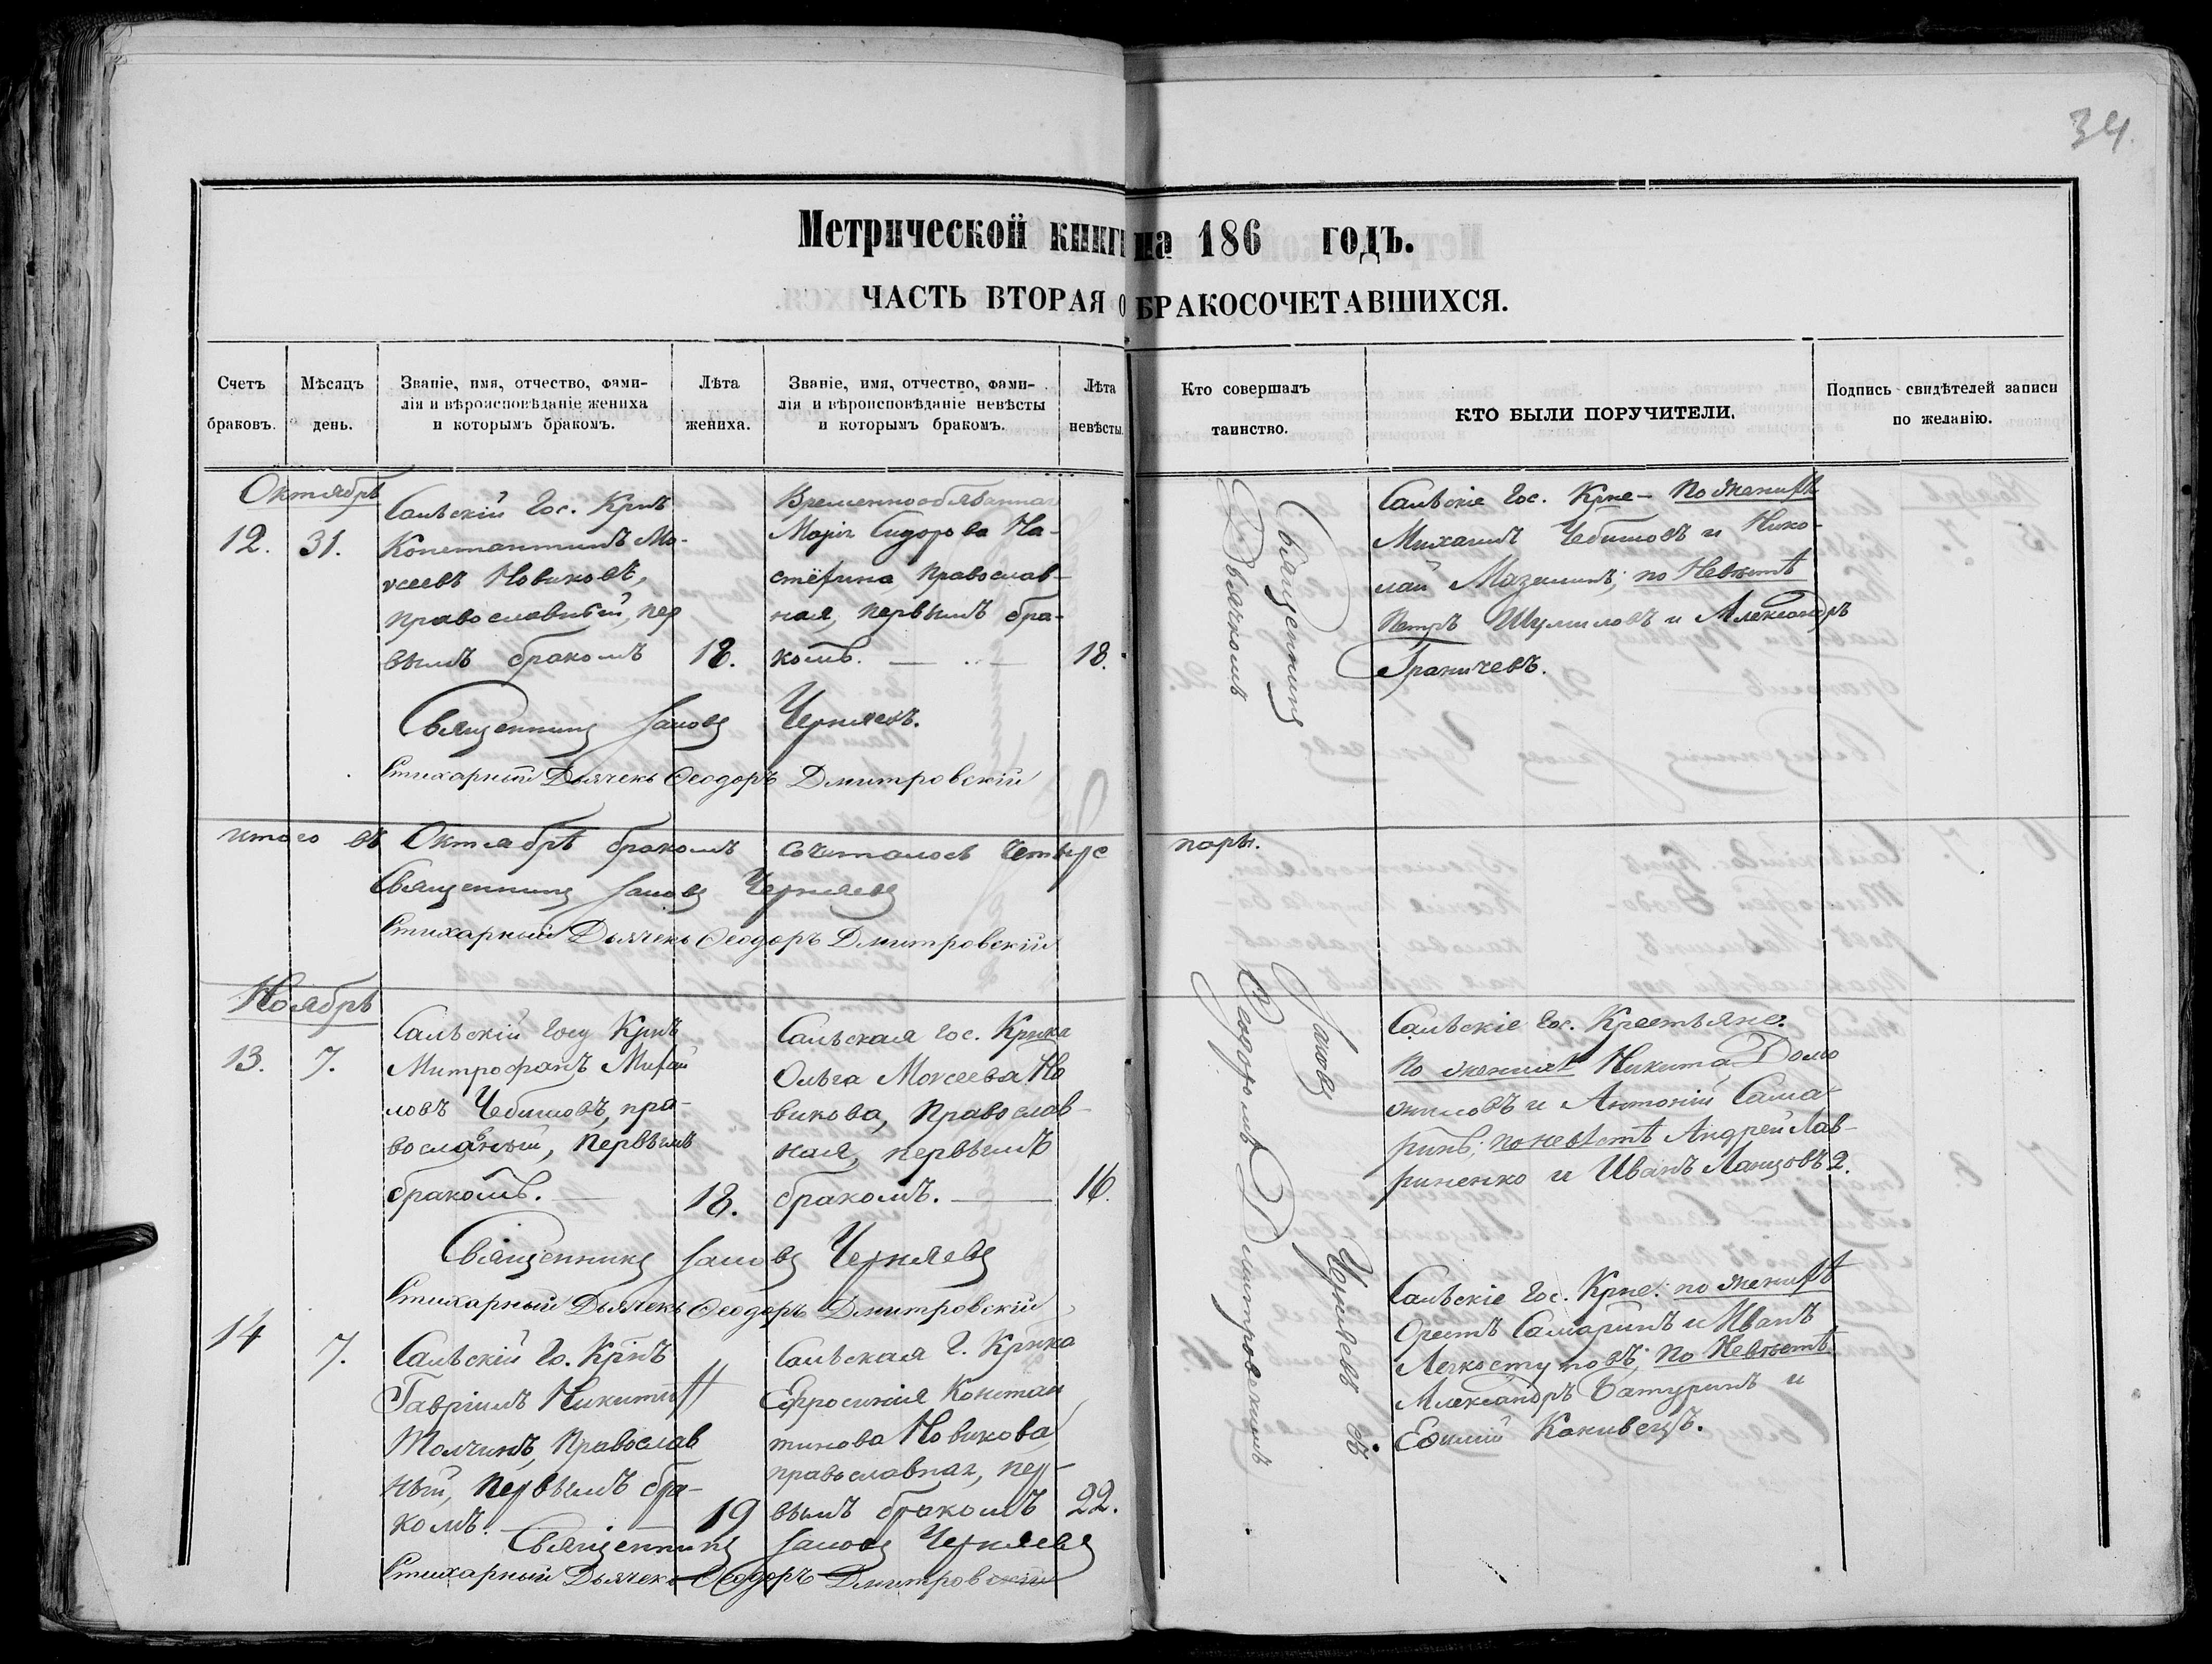 34.
Метрической книги на 186 годъ.
ЧАСТЬ ВТОРАЯ О БРАКОСОЧЕТАВШИХСЯ.
Счетъ браковъ.
Мѣсяцъ день.
Званіе, имя, отчество, фами-
лія и вѣроисповѣданіе жениха
и которымъ бракомъ.
Лѣта
жениха.
Званіе, имя, отчество, фами-
лія и вѣроисповѣданіе невѣсты
и которымъ бракомъ.
Лѣта
невѣсты.
Кто совершалъ
таинство.
КТО БЫЛИ ПОРУЧИТЕЛИ.
Подпись свидѣтелей записи
по желанію.
Октябрь
12.
31.
Сальскій Гос. Крнъ
Константинъ Мо-
ѵсеевъ Новиковъ,
православный, пер
вымъ бракомъ
18.
Временнообязанная
Марія Сидорова
православ-
ная, первымъ бра-
комъ.
18.
Сальскіе Гос. Крне - по женихѣ
Михаилъ Чебишовъ и Нико-
лай Мазалинъ; по Невѣстѣ
Петръ Шумиловъ и Александръ
Граничевъ.
Священникъ Іаковъ Черняевъ.
Стихарный Дьячекъ Ѳеодоръ Дмитровскій
итого въ Октябрѣ бракомъ сочеталось четыре пары.
Священникъ Іаковъ Черняевъ
Стихарный Дьячекъ Ѳеодоръ Дмитровскій
Ноябрь
13.
7.
Сальскій Госу Крнъ
Митрофанъ Михаи
ловъ Чебишовъ, пра-
вославный, первымъ
бракомъ.
18.
Сальская Гос. Крнка
Ольга Моѵсеева Но
викова, Православ-
ная, первымъ
бракомъ.
16.
Сальскіе Гос. Крестьяне.
По женихѣ Никита Домо
жиловъ и Антоній Сама
ринъ; по невѣстѣ Андрей Лав-
риненко и Иванъ Ланцовъ 2.
Священникъ Іаковъ Черняевъ
Стихарный Дьячекъ Ѳеодоръ Дмитровскій
14
7.
Сальскій Го. Крнъ
Гавріилъ Никитинъ
Толчинъ, Православ
ный, первымъ бра-
комъ.
19
Сальская Г. Крнка
Ефросинія Констан
тинова Новикова
православная, пер-
вымъ бракомъ
22.
Сальскіе Гос. Крне: по женихѣ
Орестъ Самаринъ и Иванъ
Легкоступовъ; По Невѣстѣ
Александръ Батуринъ и
Ефимій Конивецъ.
Священникъ Іаковъ Черняевъ
Стихарный Дьячекъ Ѳеодоръ Дмитровскій
Священникъ Іаковъ Черняевъ съ
Дьячкомъ Ѳеодоромъ Дмитровскимъ.